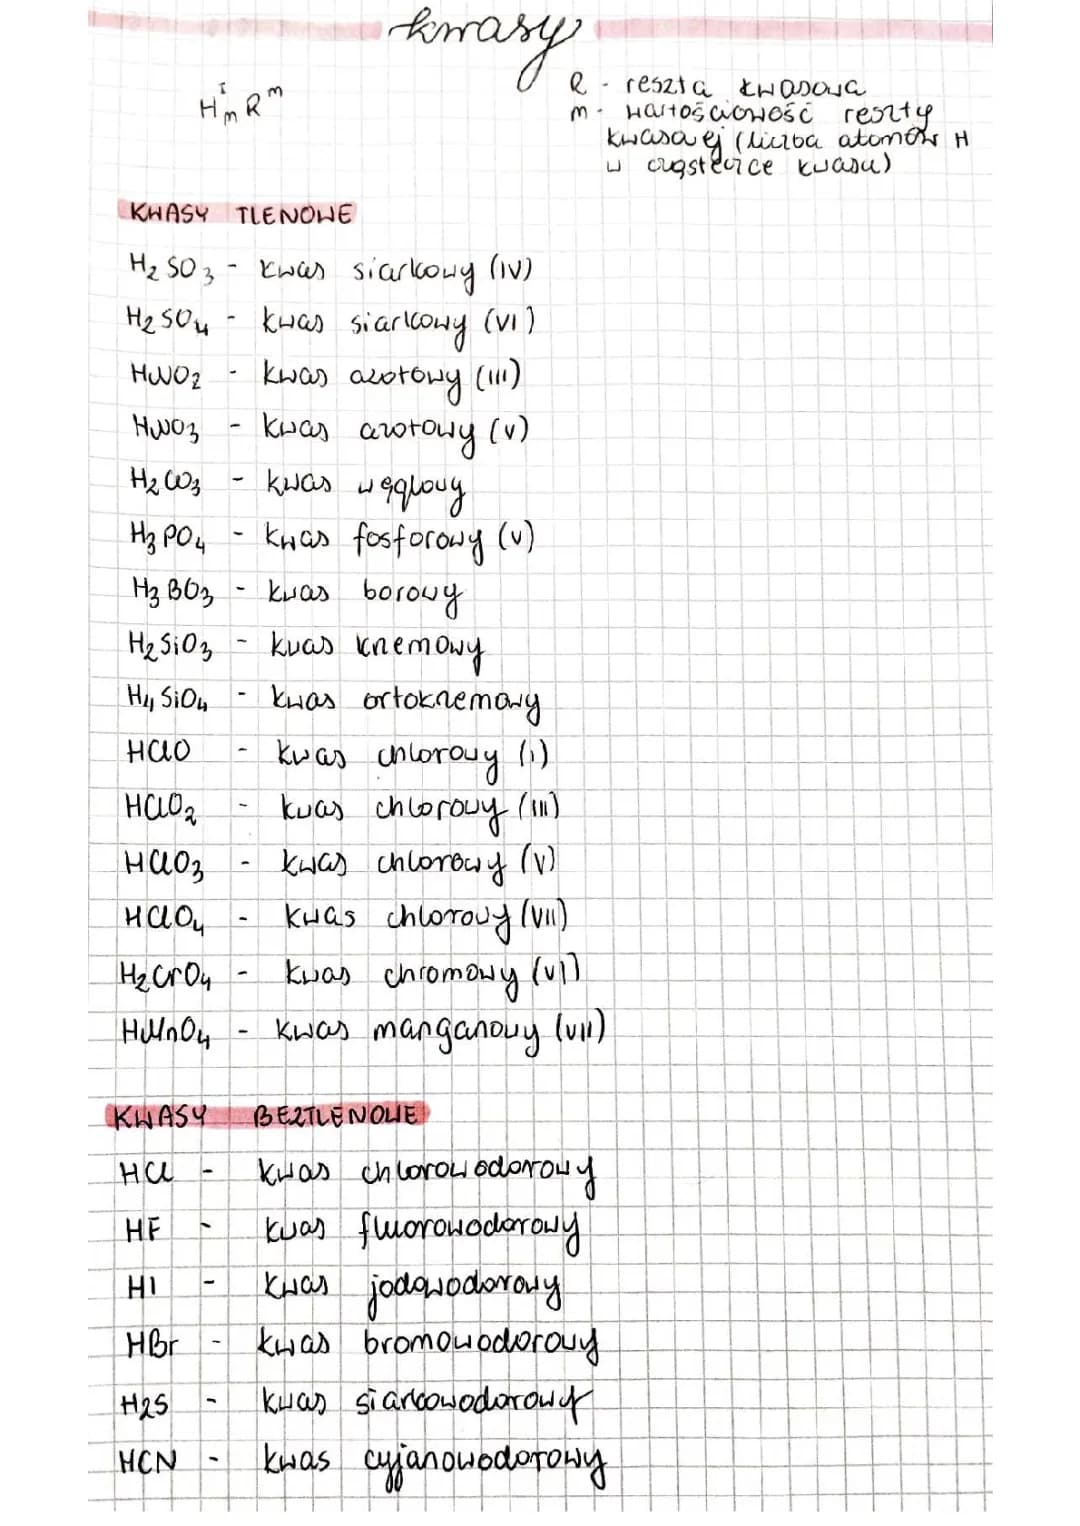 kwasy
H^I_m R^m
R - reszta kwasowa
m - wartościowość reszty
kwasowej (liczba atomów H
w cząsteczce kwasu)
KWASY TLENOWE
H₂SO₃ - kwas siarkowy (IV)
H₂SO₄ - kwas siarkowy (VI)
HNO₂ - kwas azotowy (III)
HNO₃ - kwas azotowy (V)
H₂CO₃ - kwas węglowy
H₃PO₄ - kwas fosforowy (V)
H₃BO₃ - kwas borowy
H₂SiO₃ - kwas krzemowy
H₄SiO₄ - kwas ortokrzemowy
HClO - kwas chlorowy (I)
HClO₂ - kwas chlorowy (III)
HClO₃ - kwas chlorowy (V)
HClO₄ - kwas chlorowy (VII)
H₂CrO₄ - kwas chromowy (VI)
HMnO₄ - kwas manganowy (VII)
KWASY BEZTLENOWE
HCl - kwas chlorowodorowy
HF - kwas fluorowodorowy
HI - kwas jodowodorowy
HBr - kwas bromowodorowy
H2S - kwas siarkowodorowy
HCN - kwas cyjanowodorowy